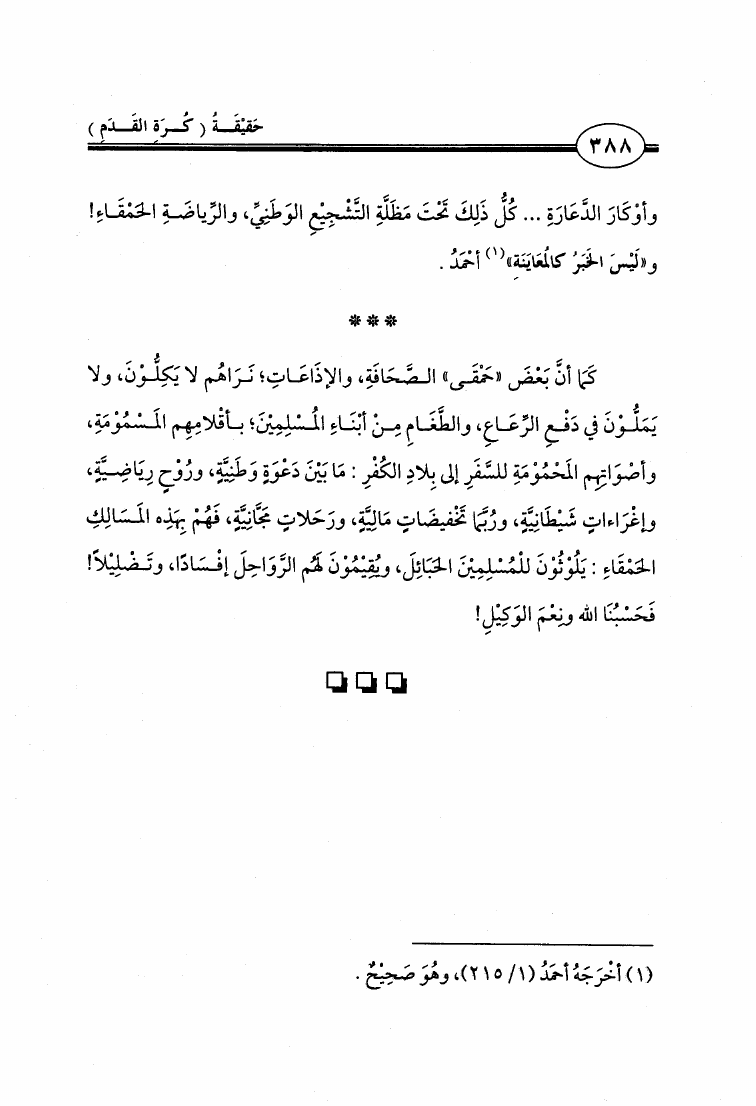 حَقِيْقَةُ ( كُرَةِ القَدَمِ )
٣٨٨
وأوْكَارَ الدَّعَارَةِ ... كُلُّ ذَلِكَ تَحْتَ مَظَلَّةِ التَّشْجِيْعِ الوَطَنِيِّ، والرِّياضَةِ الحَمْقَاءِ!
و«لَيْسَ الخَبَرُ كالمُعَايَنَةِ»(١) أحْمَدُ .
***
كَمَا أنَّ بَعْضَ «حَمْقَى» الصَّحَافَةِ، والإذَاعَاتِ؛ نَرَاهُم لا يَكِلُّوْنَ، ولا
يَمَلُّوْنَ في دَفْعِ الرِّعَاعِ، والطَّغَامِ مِنْ أبْنَاءِ المُسْلِمِيْنَ؛ بأقْلامِهِم المَسْمُوْمَةِ،
وأصْوَاتِهِم المَحْمُوْمَةِ للسَّفَرِ إلى بِلادِ الكُفْرِ : مَا بَيْنَ دَعْوَةٍ وَطَنِيَّةٍ، ورُوْحٍ رِيَاضِيَّةٍ،
وإغْرَاءاتٍ شَيْطَانِيَّةٍ، ورُبَّمَا تَخْفِيضَاتٍ مَالِيَّةٍ، ورَحَلاتٍ مَجَّانِيَّةٍ، فَهُمْ بِهَذِه المَسَالِكِ
الحَمْقَاءِ : يَلُوْثُوْنَ للمُسْلِمِيْنَ الحَبَائِلَ، ويُقِيْمُوْنَ لَهُم الرَّوَاحِلَ إفْسَادًا، وتَضْلِيْلاً!
فَحَسْبُنَا الله ونِعْمَ الوَكِيْلِ!
(١) أخْرَجَهُ أحْمَدُ (١/ ٢١٥)، وهُوَ صَحِيْحٌ .